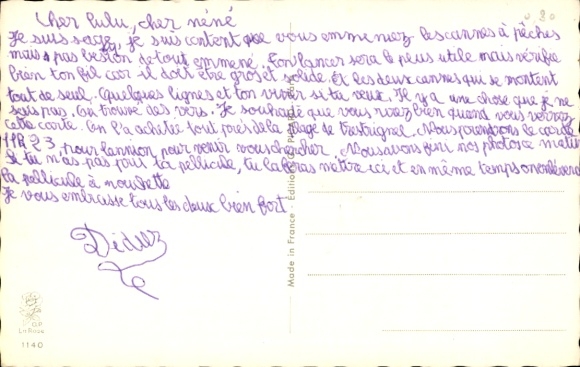 Cher lulu, cher néné
Je suis sage, je suis content que vous emmeniez les cannes à pêches
mais pas besoin de tout emmené. Ton lancer sera le plus utile mais vérifie
bien ton fil car il doit être gros et solide. Et les deux cannes qui se montent
tout de seul. Quelques lignes et ton vivier si tu veux. Il y a une chose que je ne
sais pas. On trouve des vers. Je souhaite que vous riez bien quand vous verrez
cette carte. On l'a acheté tout près de la plage de Trestrignel. Nous prendrons le car de
pour lannion pour venir vous chercher. Nous avons fini nos photos ce matin
Si tu n'as pas pour ta pellicule, tu la feras mettre ici et en même temps on enlèvera
la pellicule à
Je vous embrasse tous les deux bien fort
Made in France - Éditions
O.P.
La Rose
1140